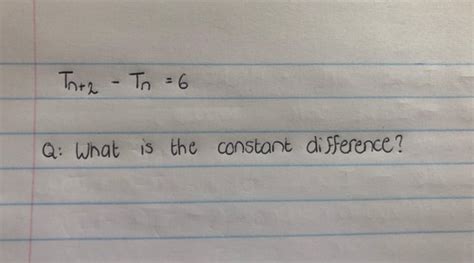 Tn+2 - Tn = 6
Q: What is the constant difference?